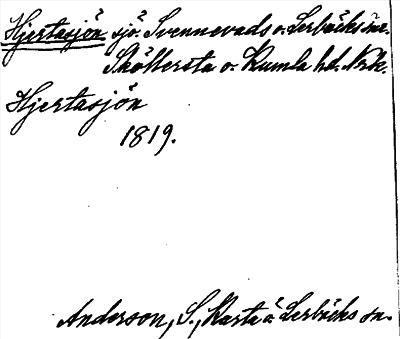 Hjertasjön sjö. Svennevads o. Lerbäcks snr.
Sköllersta o. Kumla hd. Nrk.
Hjertasjön
1819.
Anderson, S., Karta ö. Lerbäcks sn.